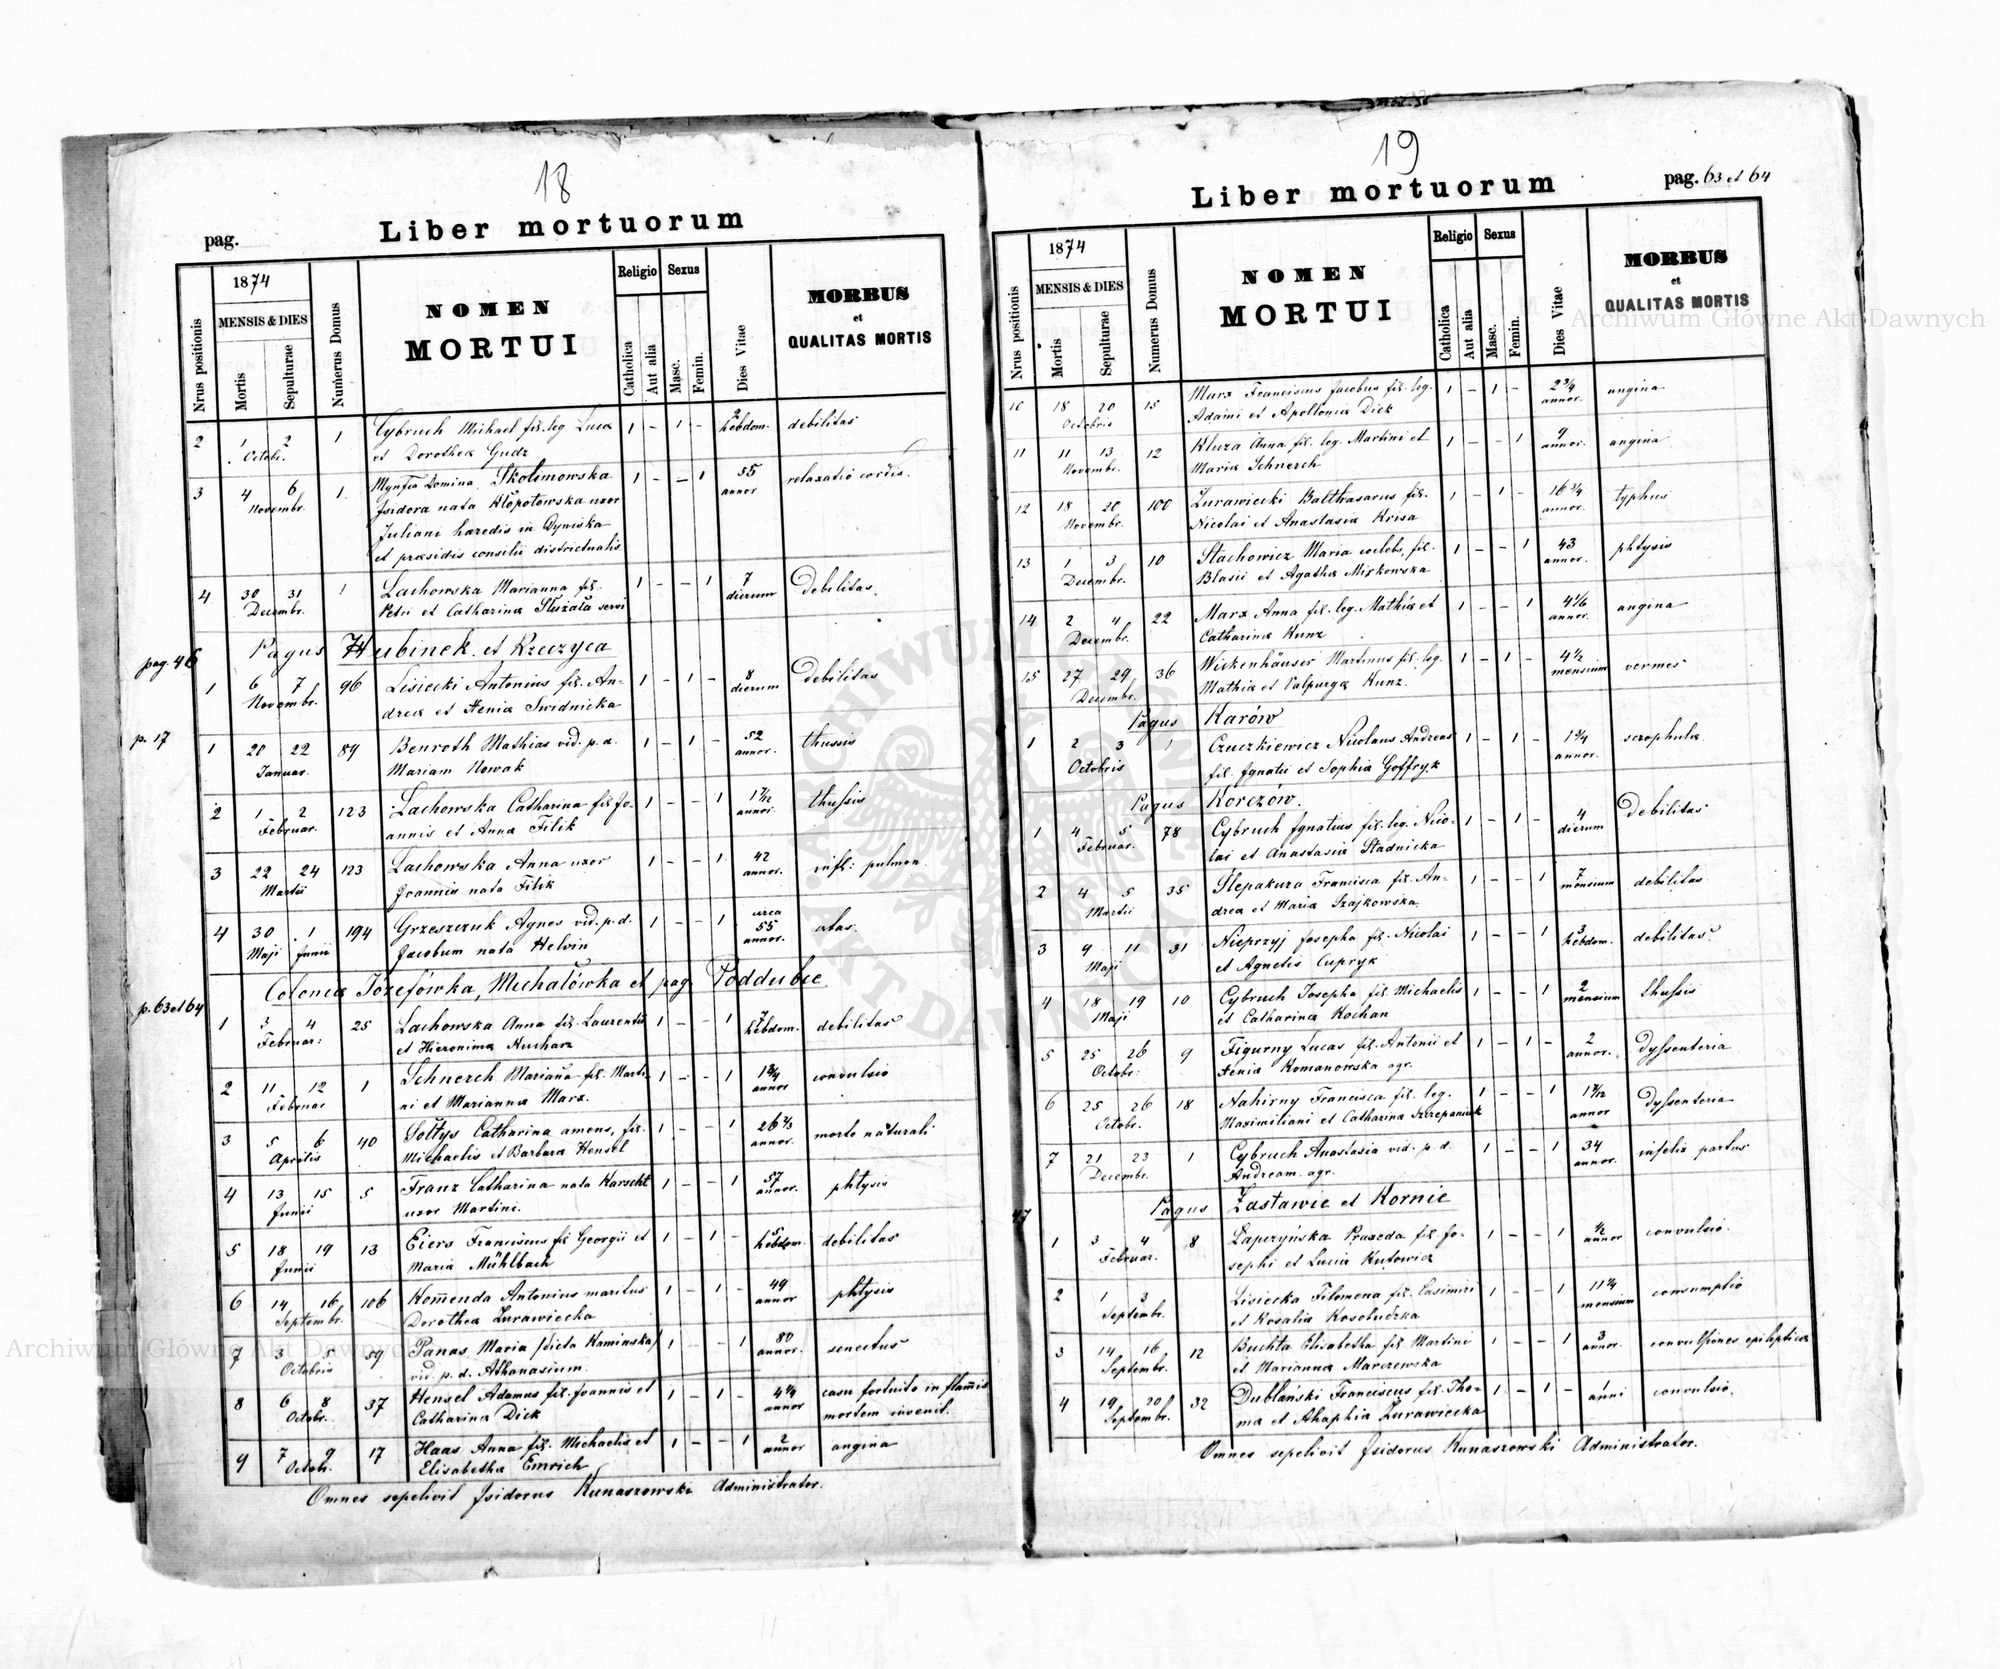 18
pag.
Liber mortuorum
Nrus positionis
1874
MENSIS & DIES
Mortis
Sepulturae
Numerus Domus
NOMEN
MORTUI
Religio
Catholica
Aut alia
Sexus
Masc.
Femin.
Dies Vitae
MORBUS
et
QUALITAS MORTIS
2 1 2 1 Cybruch Michael fil. leg. Lucæ 1 - 1 - 2 debilitas
Octobr. et Dorothea Gudz hebdom.
3 4 6 1 Mgnfca Domina Skolimowska 1 - - 1 55 relaxatio cordis.
Novembr. Isidora nata Kłopotowska uxor annor
Juliani hæredis in Dyniska
et præsidis consilii districtualis
4 30 31 1 Lachowska Marianna fil. 1 - - 1 7 Debilitas.
Decembr. Petri et Catharina Służała servi dierum
pag. 46 Pagus Hubinek et Rzeczyca
1 6 7 96 Lisiecki Antonius fil. An- 1 - 1 - 8 Debilitas
Novembr. dreæ et Xenia Swidnicka dierum
p. 17
1 20 22 89 Benroth Mathias vid. p. d. 1 - 1 - 52 thussis
Januar. Mariam Nowak annor.
2 1 2 123 Lachowska Catharina fil. Jo- 1 - - 1 1 7/12 thussis
Februar. annis et Anna Filik annor.
3 22 24 123 Lachowska Anna uxor 1 - - 1 42 infl: pulmon.
Martii Joannis nata Filik annor.
4 30 1 194 Grzeszczuk Agnes vid. p. d. 1 - - 1 circa 55 ætas.
Maji Junii Jacobum nata Helvin annor.
p. 63 et 64 Coloniæ Józefówka, Michałówka et pag. Poddubce
1 3 4 25 Lachowska Anna fil. Laurentii 1 - - 1 7 debilitas
Februar: et Hieronima Kucharz hebdom.
2 11 12 1 Schnerch Marianna fil. Marti- 1 - - 1 1 3/4 convulsio
Februar ni et Marianna Marx. annor
3 5 6 40 Sołtys Catharina amens, fil. 1 - - 1 26 2/3 morte naturali
Aprilis Michaelis et Barbara Hensel annor.
4 13 15 5 Franz Catharina nata Karscht 1 - - 1 57 phtysis
Junii uxor Martini. annor.
5 18 19 13 Eiers Franciscus fil Georgii et 1 - 1 - 5 debilitas
Junii Maria Mühlbach hebdom.
6 14 16 106 Komenda Antonius maritus 1 - 1 - 49 phtysis
Septembr. Dorothea Żurawiecka annor
7 3 5 59 Panas Maria /dicta Kaminska/ 1 - - 1 80 senectus
Octobris vid. p. d. Athanasium annor.
8 6 8 37 Hensel Adamus fil. Joannis et 1 - 1 - 4 1/4 casu fortuito in flammis
Octobr. Catharina Dick annor mortem invenit.
9 7 9 17 Haas Anna fil. Michaelis et 1 - - 1 2 angina
Octobr. Elisabetha Emrich annor
Omnes sepelivit Isidorus Kunaszowski Administrator.
19
Liber mortuorum
pag. 63 et 64
Nrus positionis
1874
MENSIS & DIES
Mortis
Sepulturae
Numerus Domus
NOMEN
MORTUI
Religio
Catholica
Aut alia
Sexus
Masc.
Femin.
Dies Vitae
MORBUS
et
QUALITAS MORTIS
10 18 20 15 Marx Franciscus Jacobus fil. leg. 1 - 1 - 2 3/4 angina
Octobris Adami et Apollonia Dick annor.
11 11 13 12 Kluza Anna fil. leg. Martini et 1 - - 1 9 angina
Novembr. Maria Schnerch annor.
12 18 20 100 Żurawiecki Balthasarus fil. 1 - 1 - 16 3/4 typhus
Novembr. Nicolai et Anastasia Krisa annor.
13 1 3 10 Stachowicz Maria coelebs, fil. 1 - - 1 43 phtysis
Decembr. Blasii et Agatha Mirkowska annor.
14 2 4 22 Marx Anna fil. leg. Mathiæ et 1 - - 1 4 1/6 angina
Decembr. Catharina Kunz annor.
15 27 29 36 Wickenhäuser Martinus fil. leg. 1 - 1 - 4 1/2 vermes
Decembr. Mathiæ et Valpurga Kunz. mensium
Pagus Karów
1 2 3 1 Czuczkiewicz Nicolaus Andreas 1 - 1 - 1 3/4 scrophulæ
Octobris fil. Ignatii et Sophia Goffryk annor.
Pagus Korczów.
1 4 5 78 Cybruch Ignatius fil. leg. Nico- 1 - 1 - 4 Debilitas
Februar. lai et Anastasia Stadnicka dierum
2 4 5 35 Slepakura Francisca fil. An- 1 - - 1 7 debilitas
Martii dreæ et Maria Szajkowska mensium
3 9 11 31 Nieprzyj Josepha fil. Nicolai 1 - - 1 3 debilitas
Maji et Agnetis Cupryk hebdom.
4 18 19 10 Cybruch Josepha fil. Michaelis 1 - - 1 2 thussis
Maji et Catharina Kochan mensium
5 25 26 9 Figurny Lucas fil. Antonii et 1 - 1 - 2 dyssenteria
Octobr: Xenia Romanowska agr. annor.
6 25 26 18 Nahirny Francisca fil. leg. 1 - - 1 1 7/12 dyssenteria
Octobr. Maximiliani et Catharina Szczepaniuk annor
7 21 23 1 Cybruch Anastasia vid. p. d. 1 - - 1 34 infelix partus
Decembr. Andream agr. annor.
47 Pagus Zastawie et Kornie
1 3 4 8 Zaparzyńska Praxeda fil. Jo- 1 - - 1 1/2 convulsio
Februar. sephi et Lucia Kutowicz annor
2 1 3 Lisiecka Filomena fil. Casimiri 1 - - 1 11 1/4 consumptio
Septembr. et Rosalia Kosobudzka mensium
3 14 16 12 Buchta Elisabetha fil. Martini 1 - - 1 3 convulsiones epilepticæ
Septembr. et Marianna Marczewska annor.
4 19 20 32 Dublański Franciscus fil. Tho- 1 - 1 - 1 convulsio.
Septembr. mæ et Ahaphia Żurawiecka anni
Omnes sepelivit Isidorus Kunaszowski Administrator.
Archiwum Główne Akt Dawnych
Archiwum Główne Akt Dawnych
ARCHIWUM GŁÓWNE AKT DAWNYCH